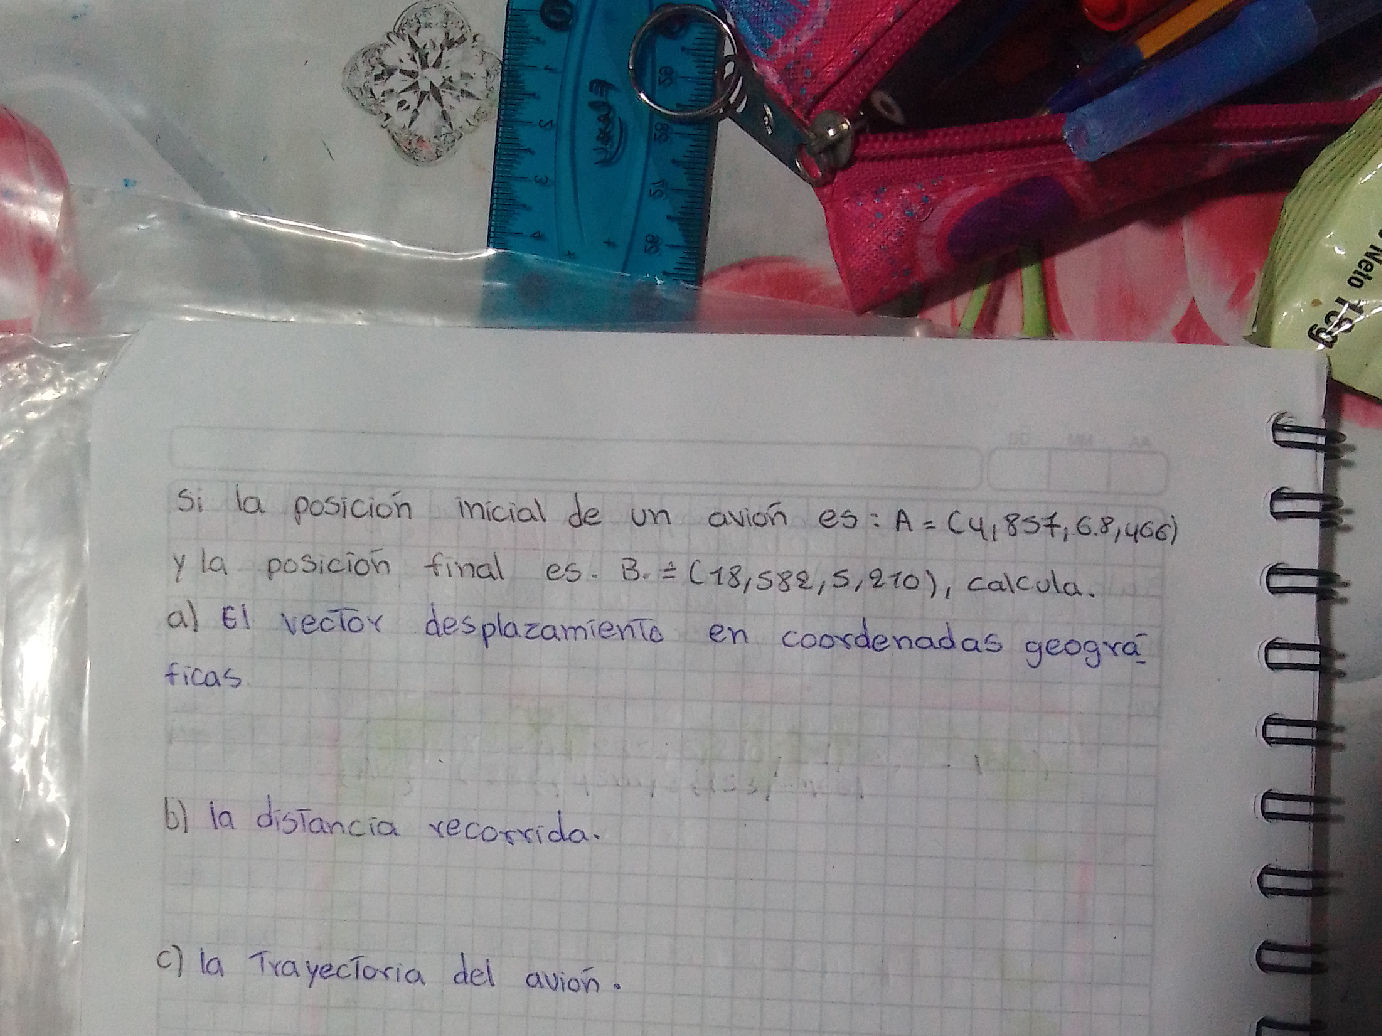 Neto 18g
Si la posición inicial de un avión es: A = (4,857,68,466)
y la posición final es. B. = (18,582,5,210), calcula.
a) El vector desplazamiento en coordenadas geográ-
ficas
b) la distancia recorrida.
c) la Trayectoria del avión.